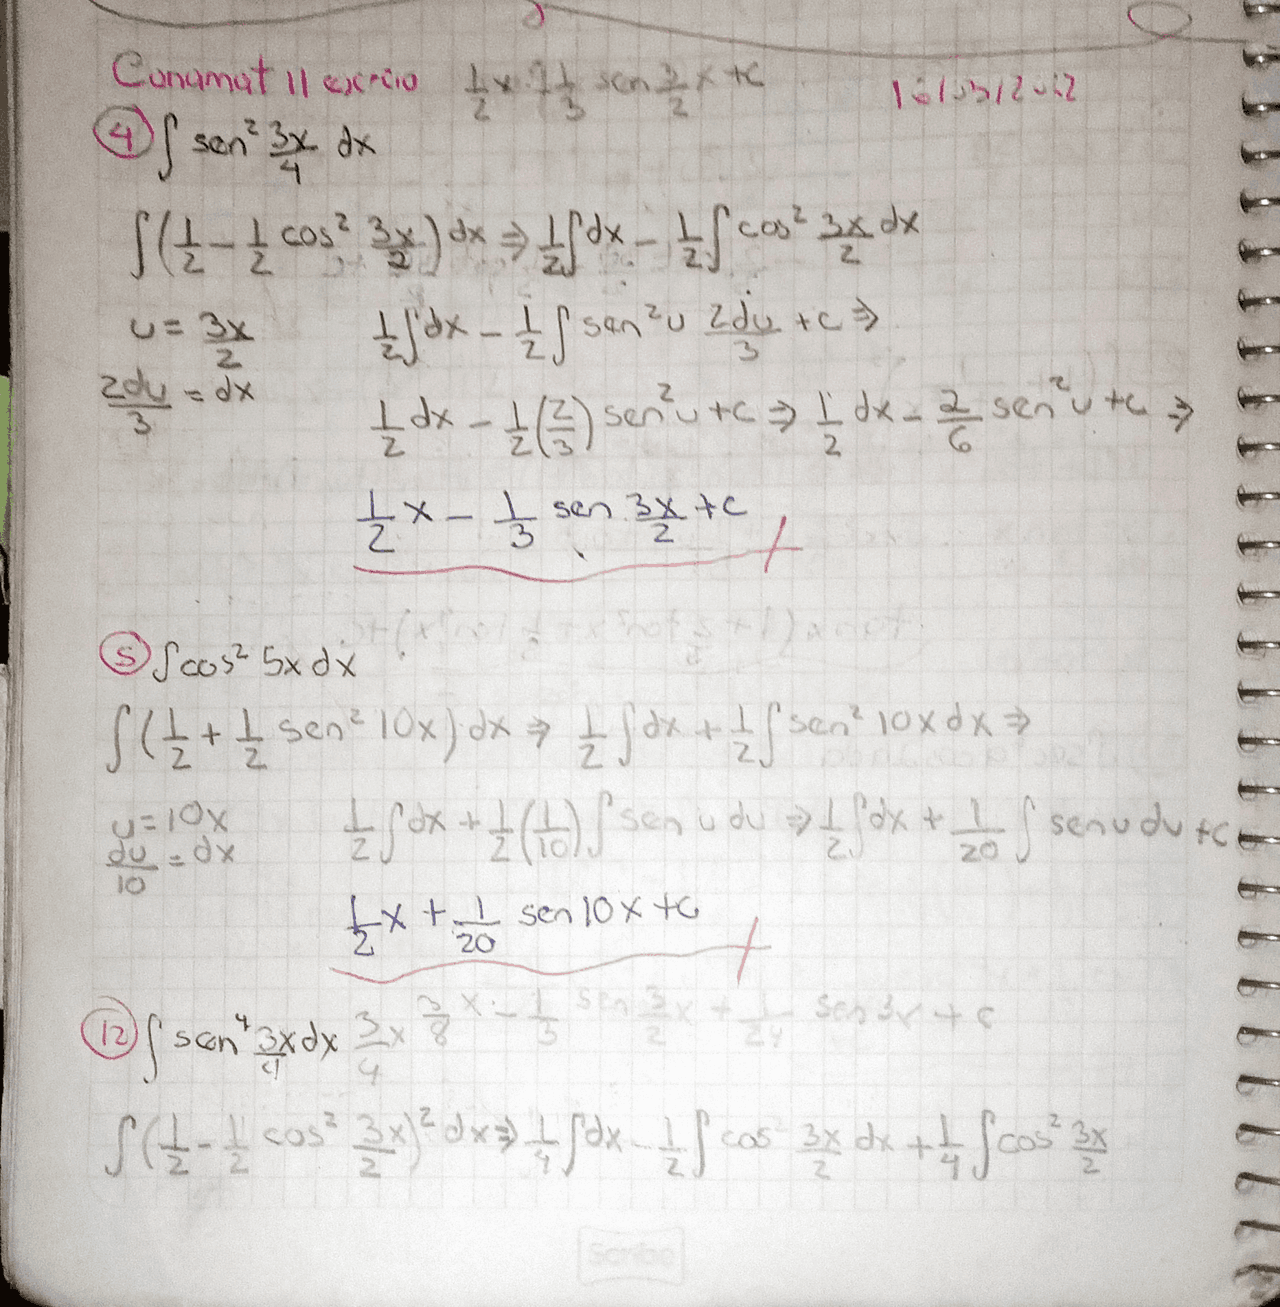 Conamat 11 1/2 x - 1/3 sen 3/2 x + c
④ ∫ sen² 3x/4 dx
∫(1/2 - 1/2 cos² 3x/2) dx ⇒ 1/2 ∫dx - 1/2 ∫ cos² 3x/2 dx
u = 3x/2 1/2 ∫dx - 1/2 ∫ sen² u 2du/3 + c ⇒
2du/3 = dx 1/2 dx - 1/2 (2/3) sen² u + c ⇒ 1/2 dx - 2/6 sen² u + c ⇒
1/2 x - 1/3 sen 3x/2 + c
⑤ ∫cos² 5x dx
∫(1/2 + 1/2 sen² 10x) dx ⇒ 1/2 ∫ dx + 1/2 ∫ sen² 10x dx ⇒
u = 10x 1/2 ∫ dx + 1/2 (1/10) ∫ sen u du ⇒ 1/2 ∫ dx + 1/20 ∫ sen u du + c
du/10 = dx
1/2 x + 1/20 sen 10x + c
⑫ ∫ sen⁴ 3x/4 dx 3/4 x 3/8 x - 1/3 sen 3/2 x + 1/24 sen 3x + c
∫(1/2 - 1/2 cos² 3x/2)² dx ⇒ 1/4 ∫dx - 1/2 ∫ cos² 3x/2 dx + 1/4 ∫cos² 3x/2
Scribe